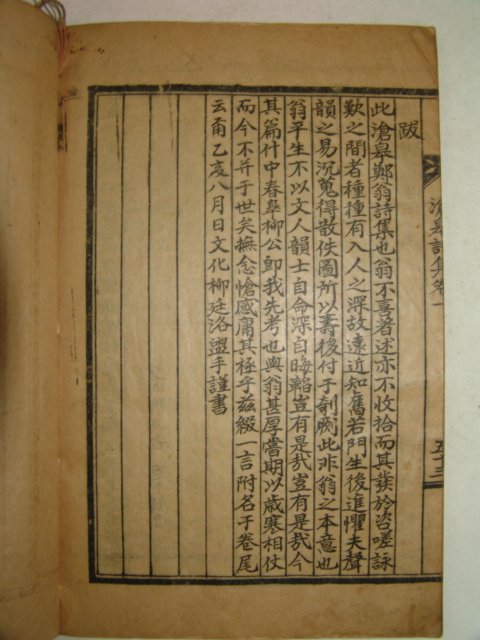 滄皐詩集卷一
五十三
跋
此滄皐鄭翁詩集也翁不喜著述亦不收拾而其發於咨嗟詠
歎之間者種種有入人之深故遠近知舊若門生後進懼夫聲
韻之易沉蒐得散佚圖所以壽後付于剞劂此非翁之本意也
翁平生不以文人韻士自命深自晦韜豈有是哉豈有是哉今
其篇什中春皐柳公卽我先考也與翁甚厚嘗期以歲寒相仗
而今不并于世矣撫念愴感庸其極乎玆綴一言附名于卷尾
云甭乙亥八月日文化柳廷洛盥手謹書